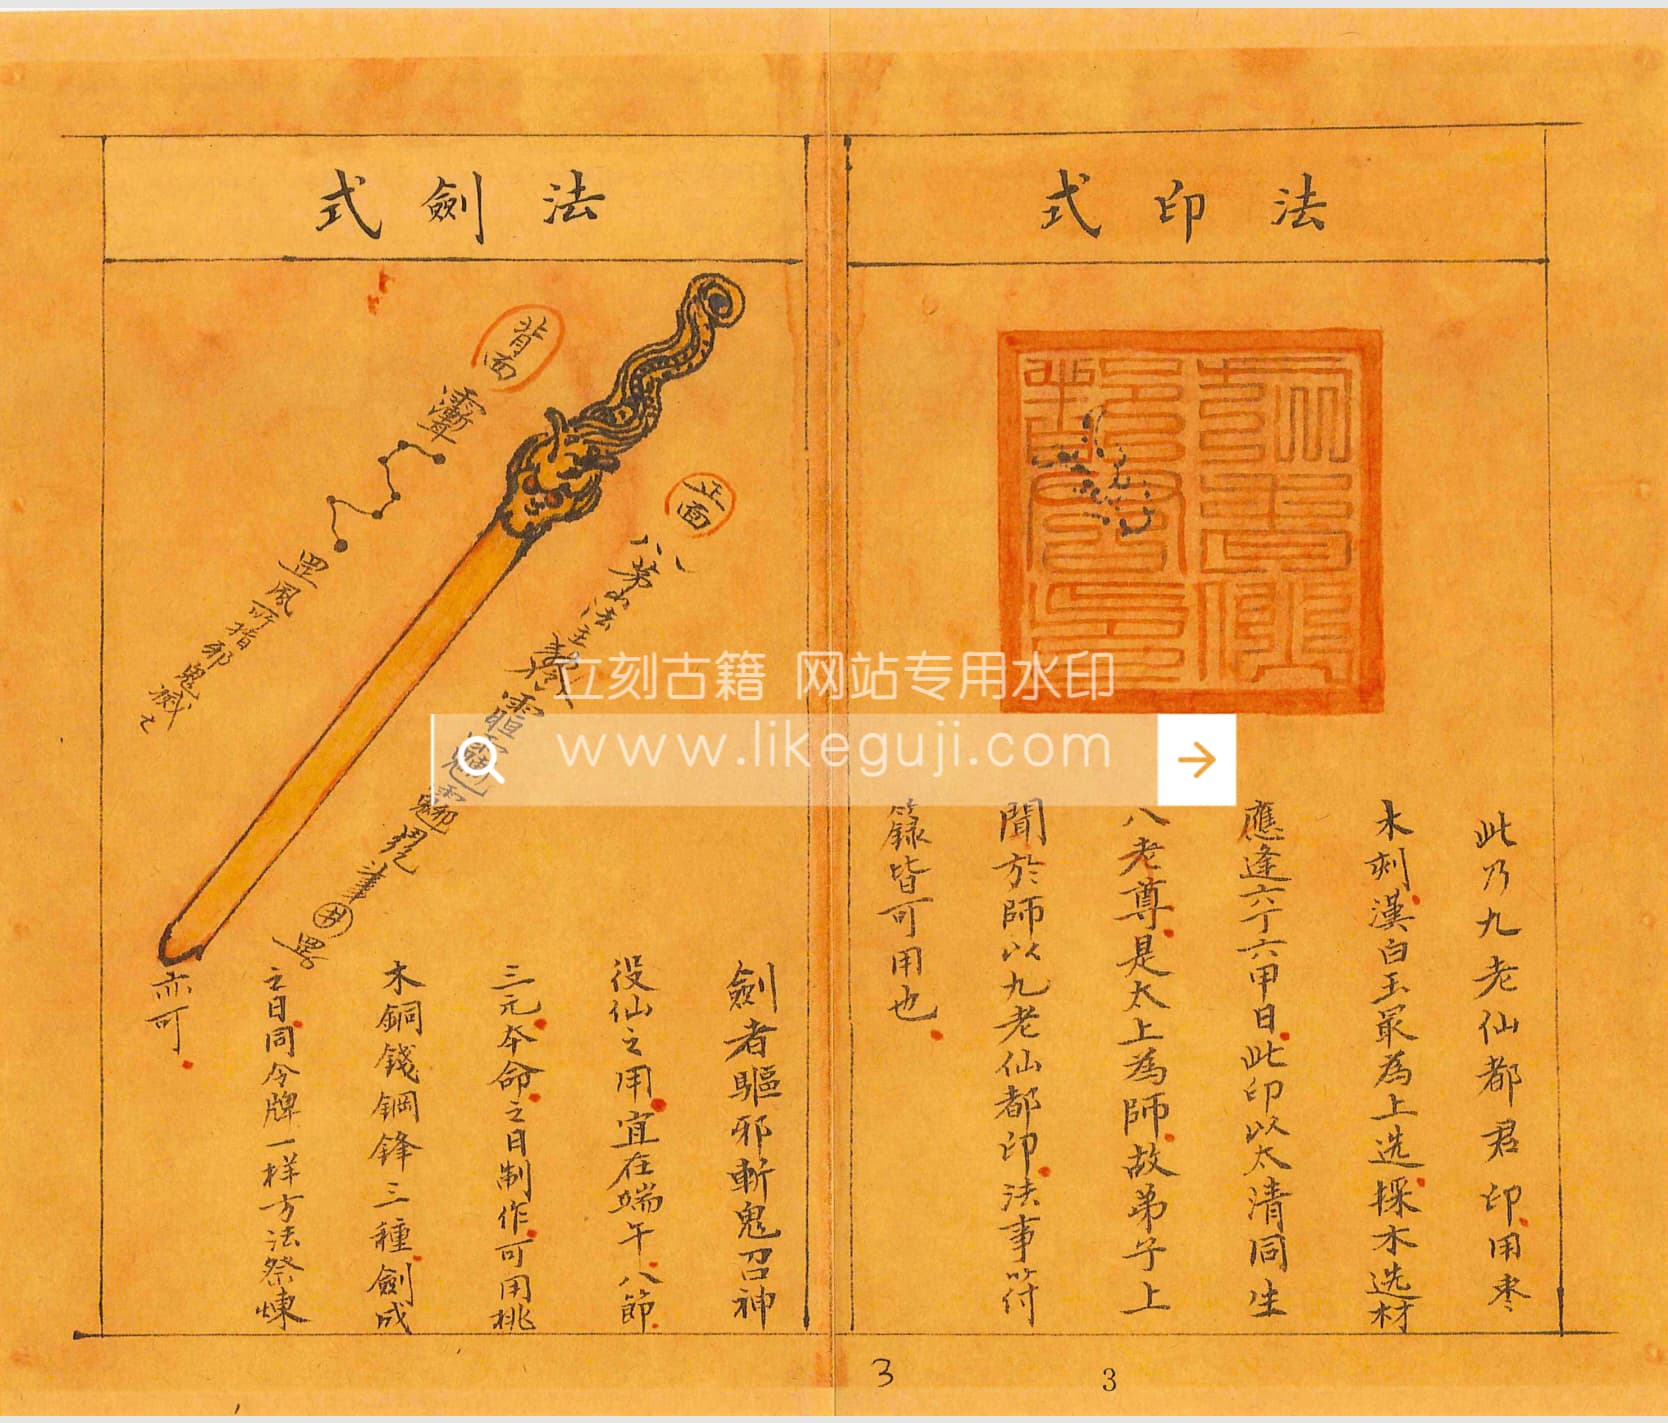 法印式
此乃九老仙都君印用枣
木刻漢白玉最為上选採木选材
應逢六丁六甲日此印以太清同生
八老尊是太上為師故弟子上
聞於師以九老仙都印法事符
籙皆可用也
法劍式
正面
背面
罡風所指邪鬼滅之
劍者驅邪斬鬼召神
役仙之用宜在端午八節
三元本命之日制作可用桃
木銅錢鋼鋒三種劍成
之日同令牌一样方法祭煉
亦可
立刻古籍 网站专用水印
www.likeguji.com
3
3